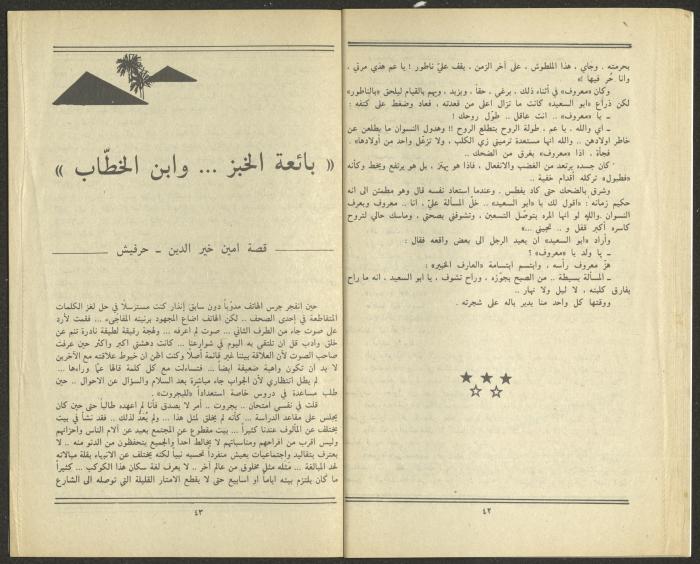 بحرمته . وجاي ، هذا الملطوش ، على آخر الزمن ، يقف عليّ ناطور ! يا عم هذي مرتي ،
وانا حُر فيها !»
وكان «معروف» في أثناء ذلك ، يرغي ، حقاً ، ويزيد ، ويهم بالقيام ليلحق «بالناطور»
لكن ذراع «ابو السعيد» كانت ما تزال اعلى من قعدته ، فعاد وضغط على كتفه :
ـ يا «معروف» .. انت عاقل .. طوّل روحك !
ـ أي والله ، يا عم ، طولة الروح بتطلع الروح !! وهدول النسوان ما بطلعن عن
خاطر اولادهن .. والله انها مستعدة ترميني زي الكلب ، ولا تزعّل واحد من أولادها» .
فجأة ، اذا «معروف» يغرق من الضحك ..
كان جسده يرتعد من الغضب والانفعال ، فاذا هو يهتز ، بل هو يرتفع ويخط وكأنه
«فطبول» تركله أقدام خفية ..
وشرق بالضحك حتى كاد يفطس . وعندما استعاد نفسه قال وهو مطمئن الى انه
حكيم زمانه : «اقول لك يا «ابو السعيد» .. خلّ المسألة عليّ ، انا .. معروف وبعرف
النسوان . والله لو انها المره بتوصّل التسعين ، وتشوفني بصحتي ، وماسك حالي لتروح
كاسره أكبر قفل و .. تجيني ...»
وأراد «ابو السعيد» ان يعيد الرجل الى بعض واقعه فقال :
ـ يا ولد يا «معروف» ؟
هزّ معروف رأسه ، وابتسم ابتسامة «العارف الخبير» :
ـ المسألة بسيطة .. من الصبح بجوّزه . وراح تشوف ، يا ابو السعيد ، انه ما راح
يفارق كلبته ، لا ليل ولا نهار ..
ووقتها كل واحد منا يدير باله على شجرته .
٤٢
« بائعة الخبز ... وابن الخطّاب »
قصة امين خير الدين ـ حرفيش
حين انفجر جرس الهاتف مدوّياً دون سابق إنذار كنت مسترسلاً في حل لغز الكلمات
المتقاطعة في إحدى الصحف .. لكن الهاتف اضاع المجهود برنينه المفاجىء ... فقمت لأرد
على صوت جاء من الطرف الثاني ... صوت لم اعرفه ... ولهجة رقيقة لطيفة نادرة تنم عن
خلق وادب قل ان تلتقي به اليوم في شوارعنا ... كانت دهشتي اكبر واكثر حين عرفت
صاحب الصوت لأن العلاقة بيننا غير قائمة أصلاً وكنت اظن ان خيوط علاقته مع الآخرين
لا بد ان تكون واهية ضعيفة ايضاً ... فتساءلت مع كل كلمة قالها عمّا وراءها ...
لم يطل انتظاري لأن الجواب جاء مباشرة بعد السلام والسؤال عن الاحوال .. حين
طلب مساعدة في دروس خاصة استعداداً «للبجروت» .
قلت في نفسي امتحان .. بجروت .. أمر لا يصدق فأنا لم اعهده طالباً حتى حين كان
يجلس على مقاعد الدراسة ... كأنه لم يخلق لمثل هذا ... ولم يُعدُّ لذلك .. فقد نشأ في بيت
يختلف عن المألوف عندنا كثيراً ... بيت مقطوع عن المجتمع بعيد عن آلام الناس واحزانهم
وليس اقرب من افراحهم ومناسباتهم لا يخالط احداً والجميع يتحفظون من الدنو منه .. لا
يعترف بتقاليد واجتماعيات يعيش منفرداً تحسبه نبياً لكنه يختلف عن الانبياء بقلة مبالاته
لحد المبالغة ... مثله مثل مخلوق من عالم آخر .. لا يعرف لغة سكان هذا الكوكب ... كثيراً
ما كان يلتزم بيته اياماً او اسابيع حتى لا يقطع الامتار القليلة التي توصله الى الشارع
٤٣